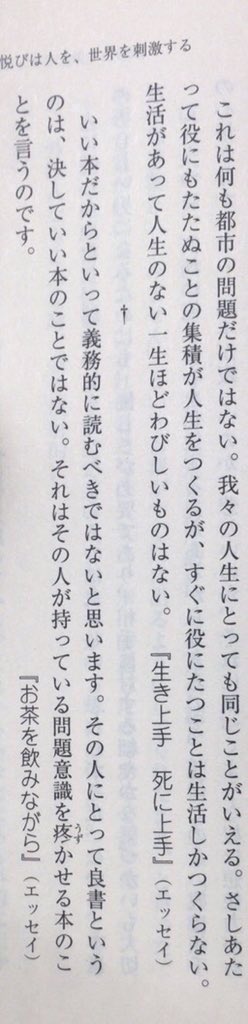 悦びは人を、世界を刺激する
これは何も都市の問題だけではない。我々の人生にとっても同じことがいえる。さしあた
って役にもたたぬことの集積が人生をつくるが、すぐに役にたつことは生活しかつくらない。
生活があって人生のない一生ほどわびしいものはない。『生き上手 死に上手』(エッセイ)
†
いい本だからといって義務的に読むべきではないと思います。その人にとって良書という
のは、決していい本のことではない。それはその人が持っている問題意識を疼うずかせる本のこ
とを言うのです。
『お茶を飲みながら』(エッセイ)